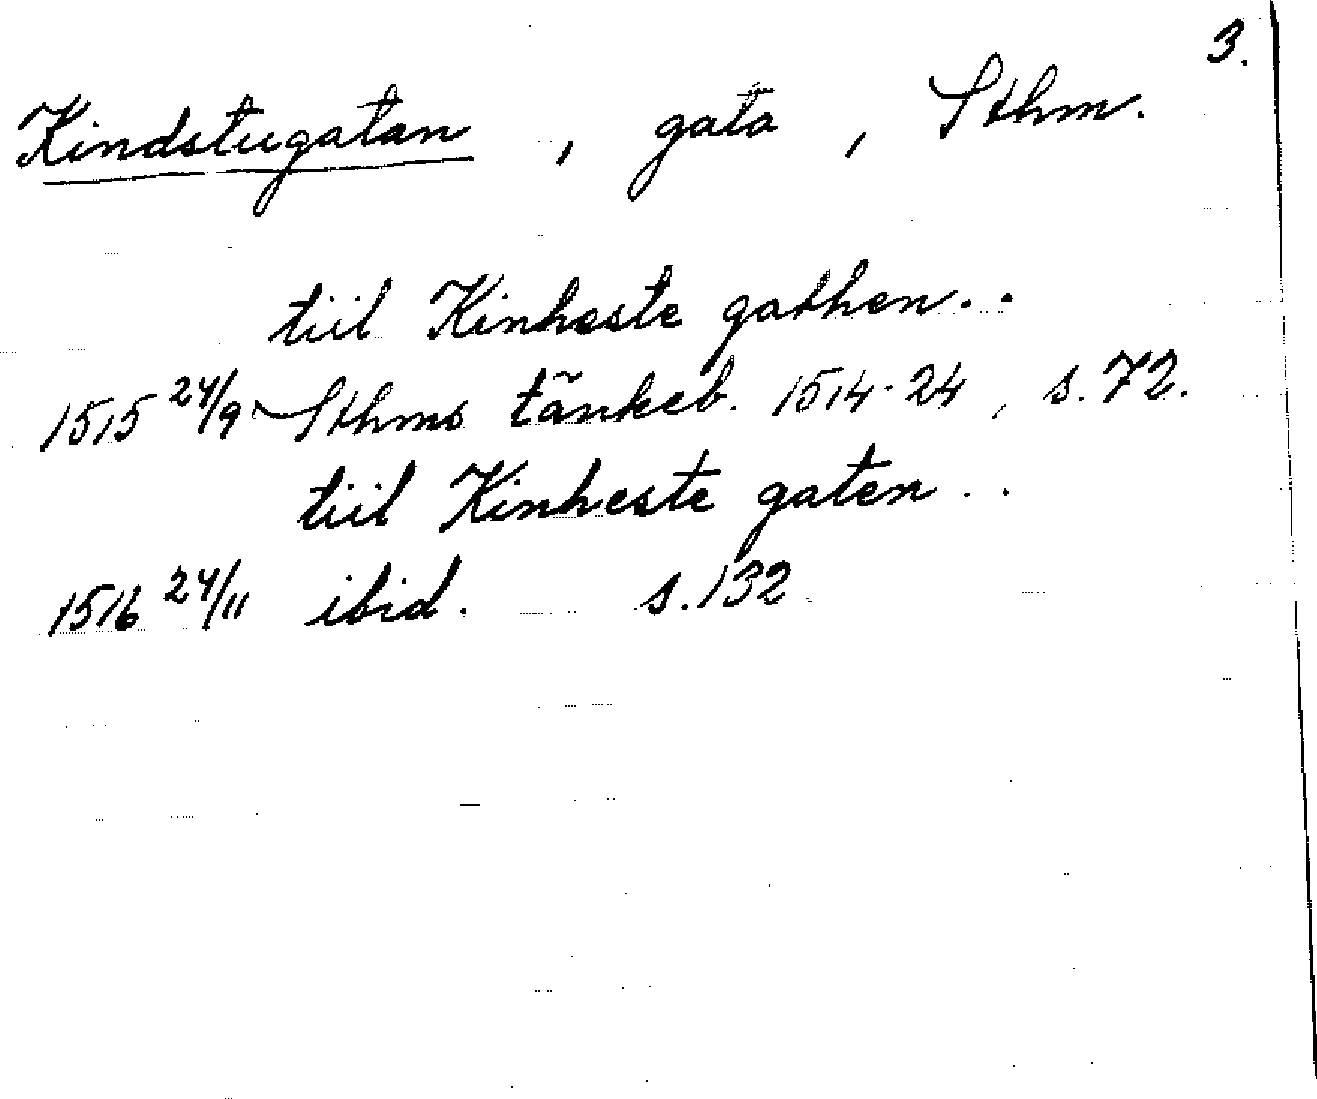 3.
Kindstugatan, gata, Sthm.
tiil Kinheste gathen..
1515 24/9 Sthms tänkeb. 1514-24, s. 72.
tiil Kinheste gaten..
1516 24/11 ibid. s. 132